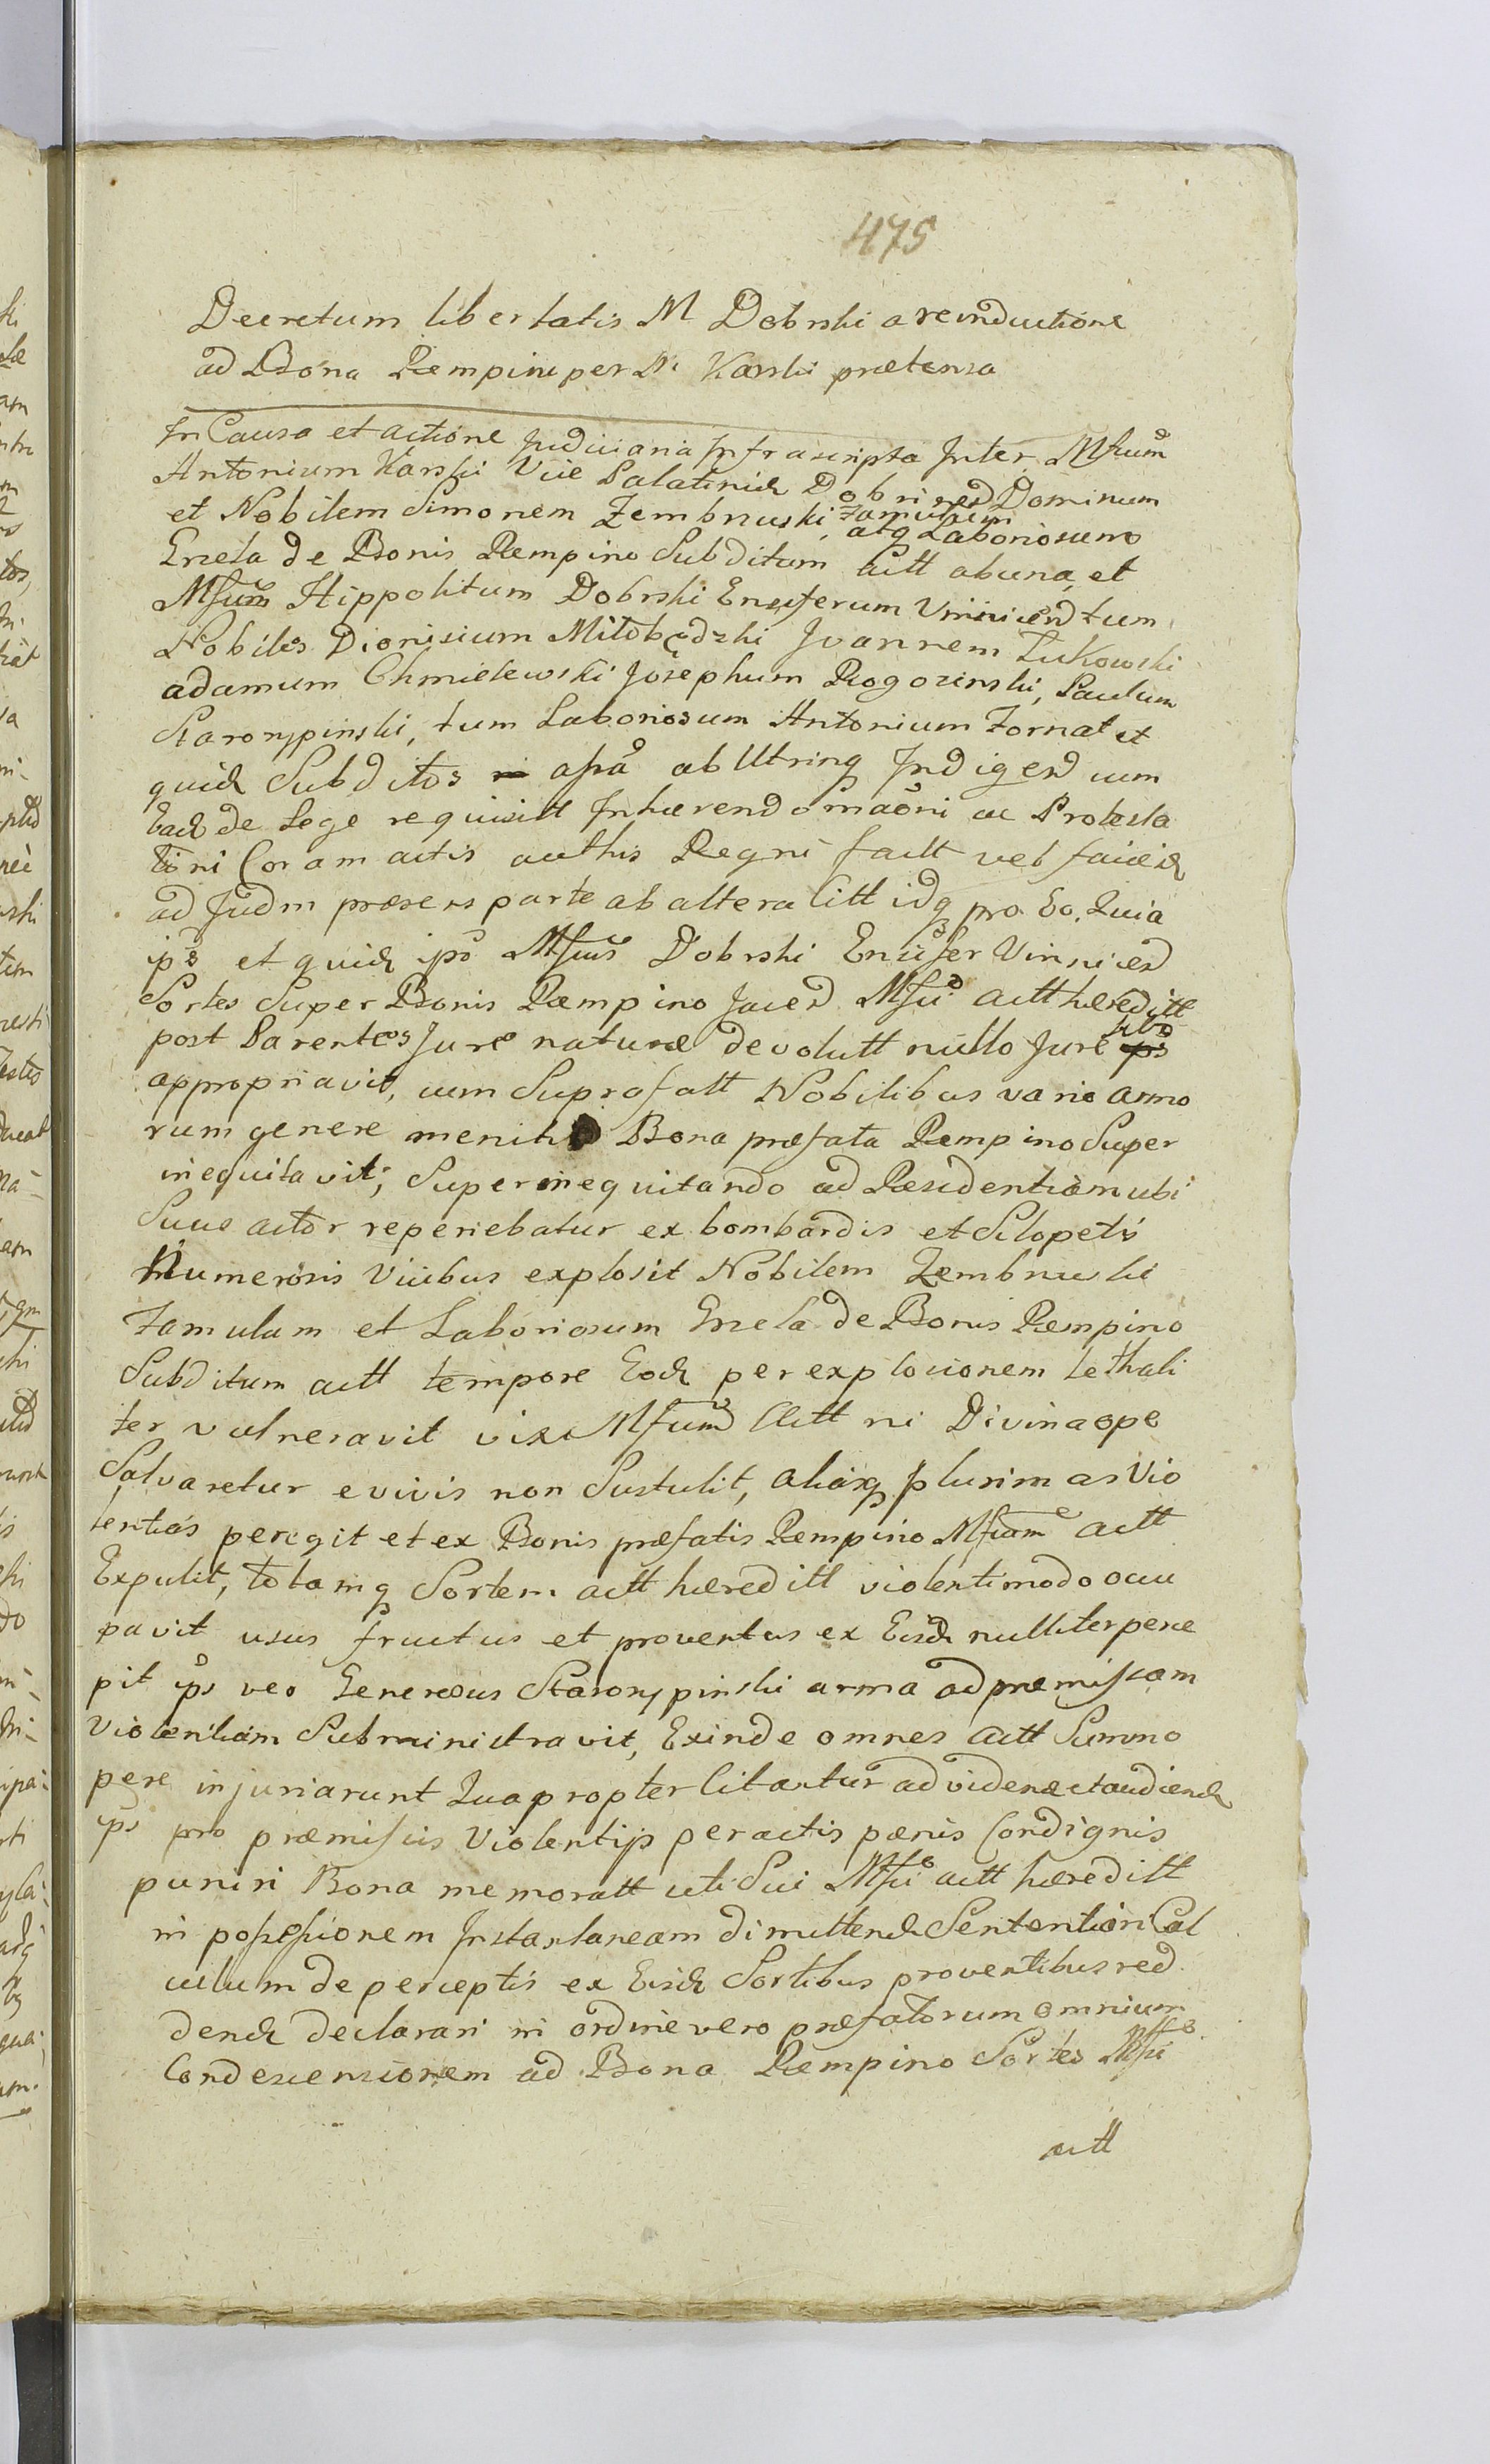 475
Decretum libertatis M Dobrski a reinductione
ad Bona Rempin per M Karski prætensa
In Causa et actione Judiciaria Infrascripta Inter Mfcum
Antonium Karski Vice Palatinid Dobrinen Dominum
et Nobilem Simonem Zembrzuski, Famulum atq Laboriosum
Grzela de Bonis Rempino Subditum actt ab una, et
Mfcum Hippolitum Dobrski Ensiferum Vinnicen tum
Nobiles Dionisium Miłobędzki Joannem Zukowski
adamum Chmielewski Josephum Rogozinski, Paulum
Starorypinski, tum Laboriosum Antonium Fornal et
quid Subditos apa ab Utrinq Indigen cum
Ead de Lege requisitt Inhærendo maoni ac Protesta
tioni Coram actis authis Regni factt vel faciend
ad Judm præsens parte ab altera Citt idq pro Eo, Quia
ips et quid ips Mfcus Dobrski Ensifer Vinnicen
Sortes Super Bonis Rempino Jacen Mfci actt hæreditt
post Parentes Jure naturæ devolutt nullo Jure sibi
appropriavit, cum Suprafatt Nobilibus vario armo
rum genere Bona præfata Rempino Super
inequitavit, Superinequitando ad Residentiam ubi
Suus actor reperiebatur ex bombardis et Sclopetis
Numerosis Vicibus explosit Nobilem Zembrzuski
Famulum et Laboriosum Grzela de Bonis Rempino
Subditum actt tempore Eod per explosionem lethali
ter vulneravit vix Mfcum Actt ni Divina ope
Salvaretur e vivis non Sustulit, aliasq plurimas Vio
lentias peregit et ex Bonis præfatis Rempino Mfcum actt
Expulit, totamq Sortem actt hæreditt violenti modo occu
pavit usus fructus et proventus ex Eisd nulliter perce
pit ips vero Generosus Starorypinski arma ad præmissam
Violentiam Subministravit, Exinde omnes actt Summo
pere injuriarunt Quapropter Citantur ad viden et audiend
ips pro præmissis Violentijs peractis pænis Condignis
puniri Bona memoratt uti Sui Mfci actt hæreditt
in possessionem Instantaneam dimittend Sententiari Cal
culum de perceptis ex Eisd Sortibus proventibus red
dend declarari in ordine vero præfatorum omnium
Condescensionem ad Bona Rempino Sortes Mfci
actt